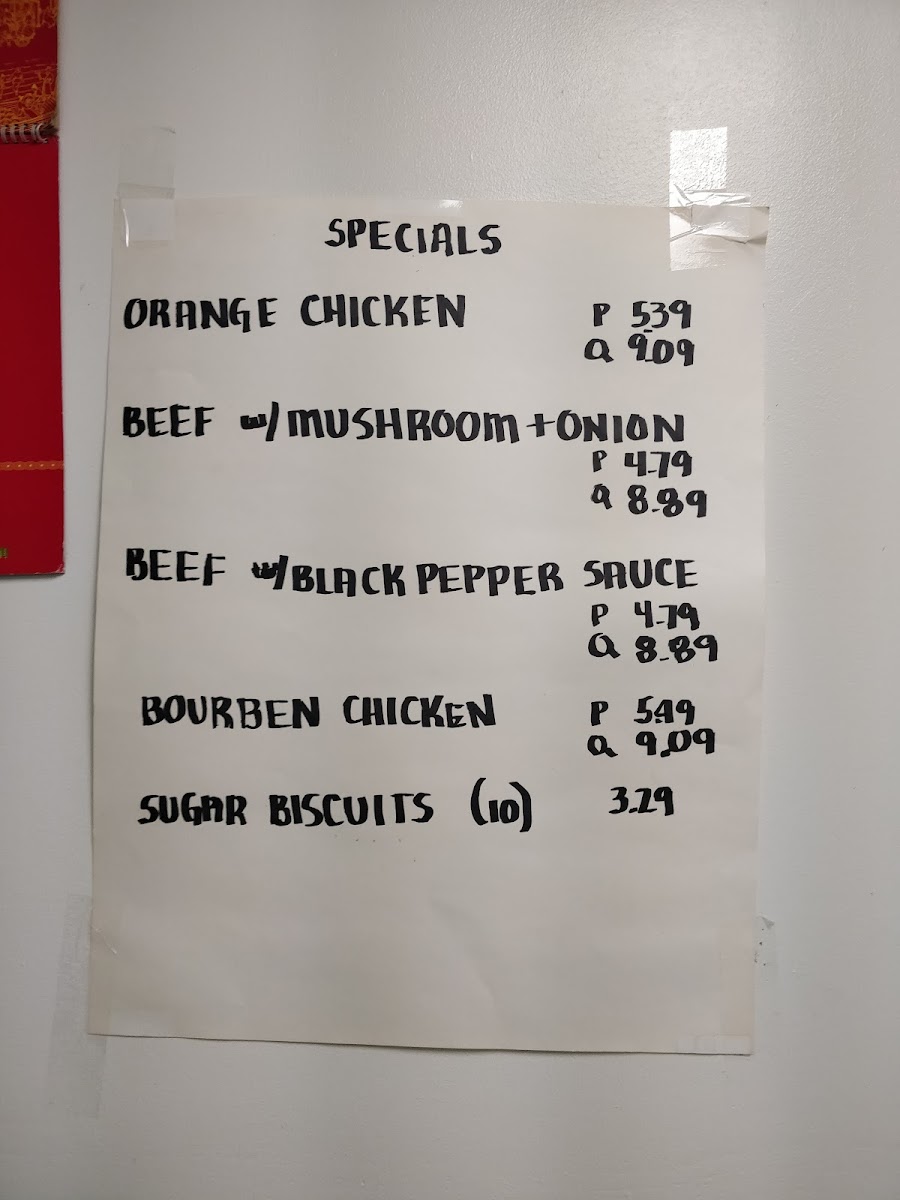 SPECIALS
ORANGE CHICKEN P 5.39
Q 9.09
BEEF w/ MUSHROOM + ONION
P 4.79
Q 8.89
BEEF w/ BLACK PEPPER SAUCE
P 4.79
Q 8.89
BOURBEN CHICKEN P 5.49
Q 9.09
SUGAR BISCUITS (10) 3.29